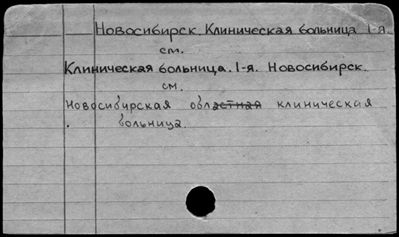 Новосибирск. Клиническая больница 1-я
см.
Клиническая больница. 1-я. Новосибирск.
см.
Новосибирская областная клиническая
больница.